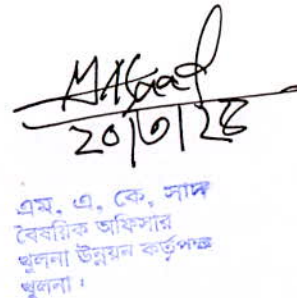 ২০/৩/২৪
এম, এ, কে, সাদ
বৈষয়িক অফিসার
খুলনা উন্নয়ন কর্তৃপক্ষ
খুলনা।